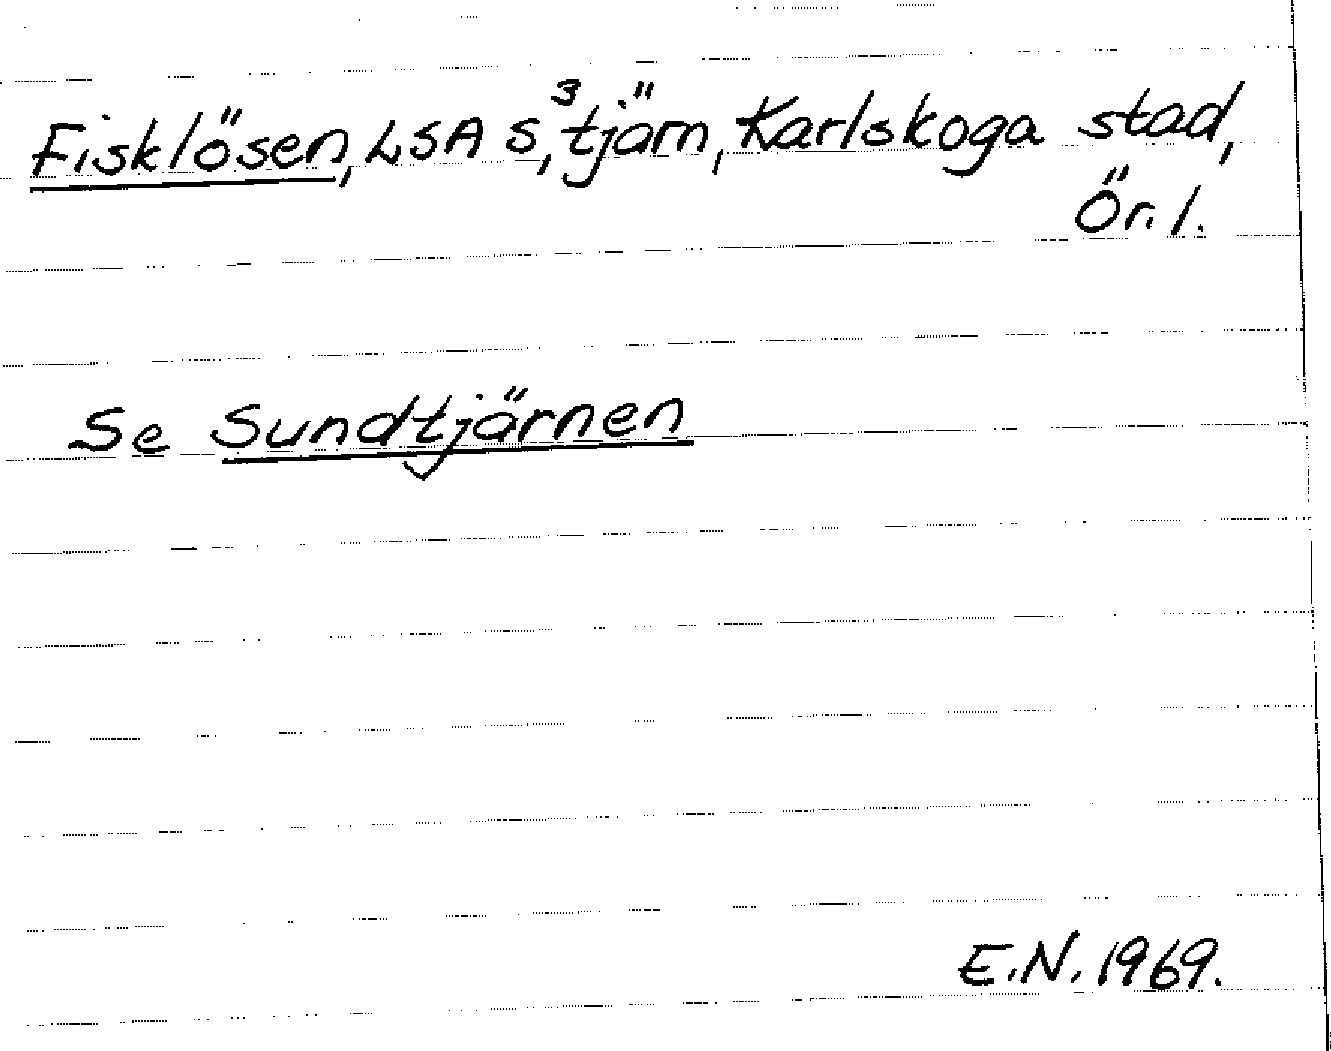 Fisklösen, LSA S, ³tjärn, Karlskoga stad,
Ör. l.
Se Sundtjärnen
E.N. 1969.